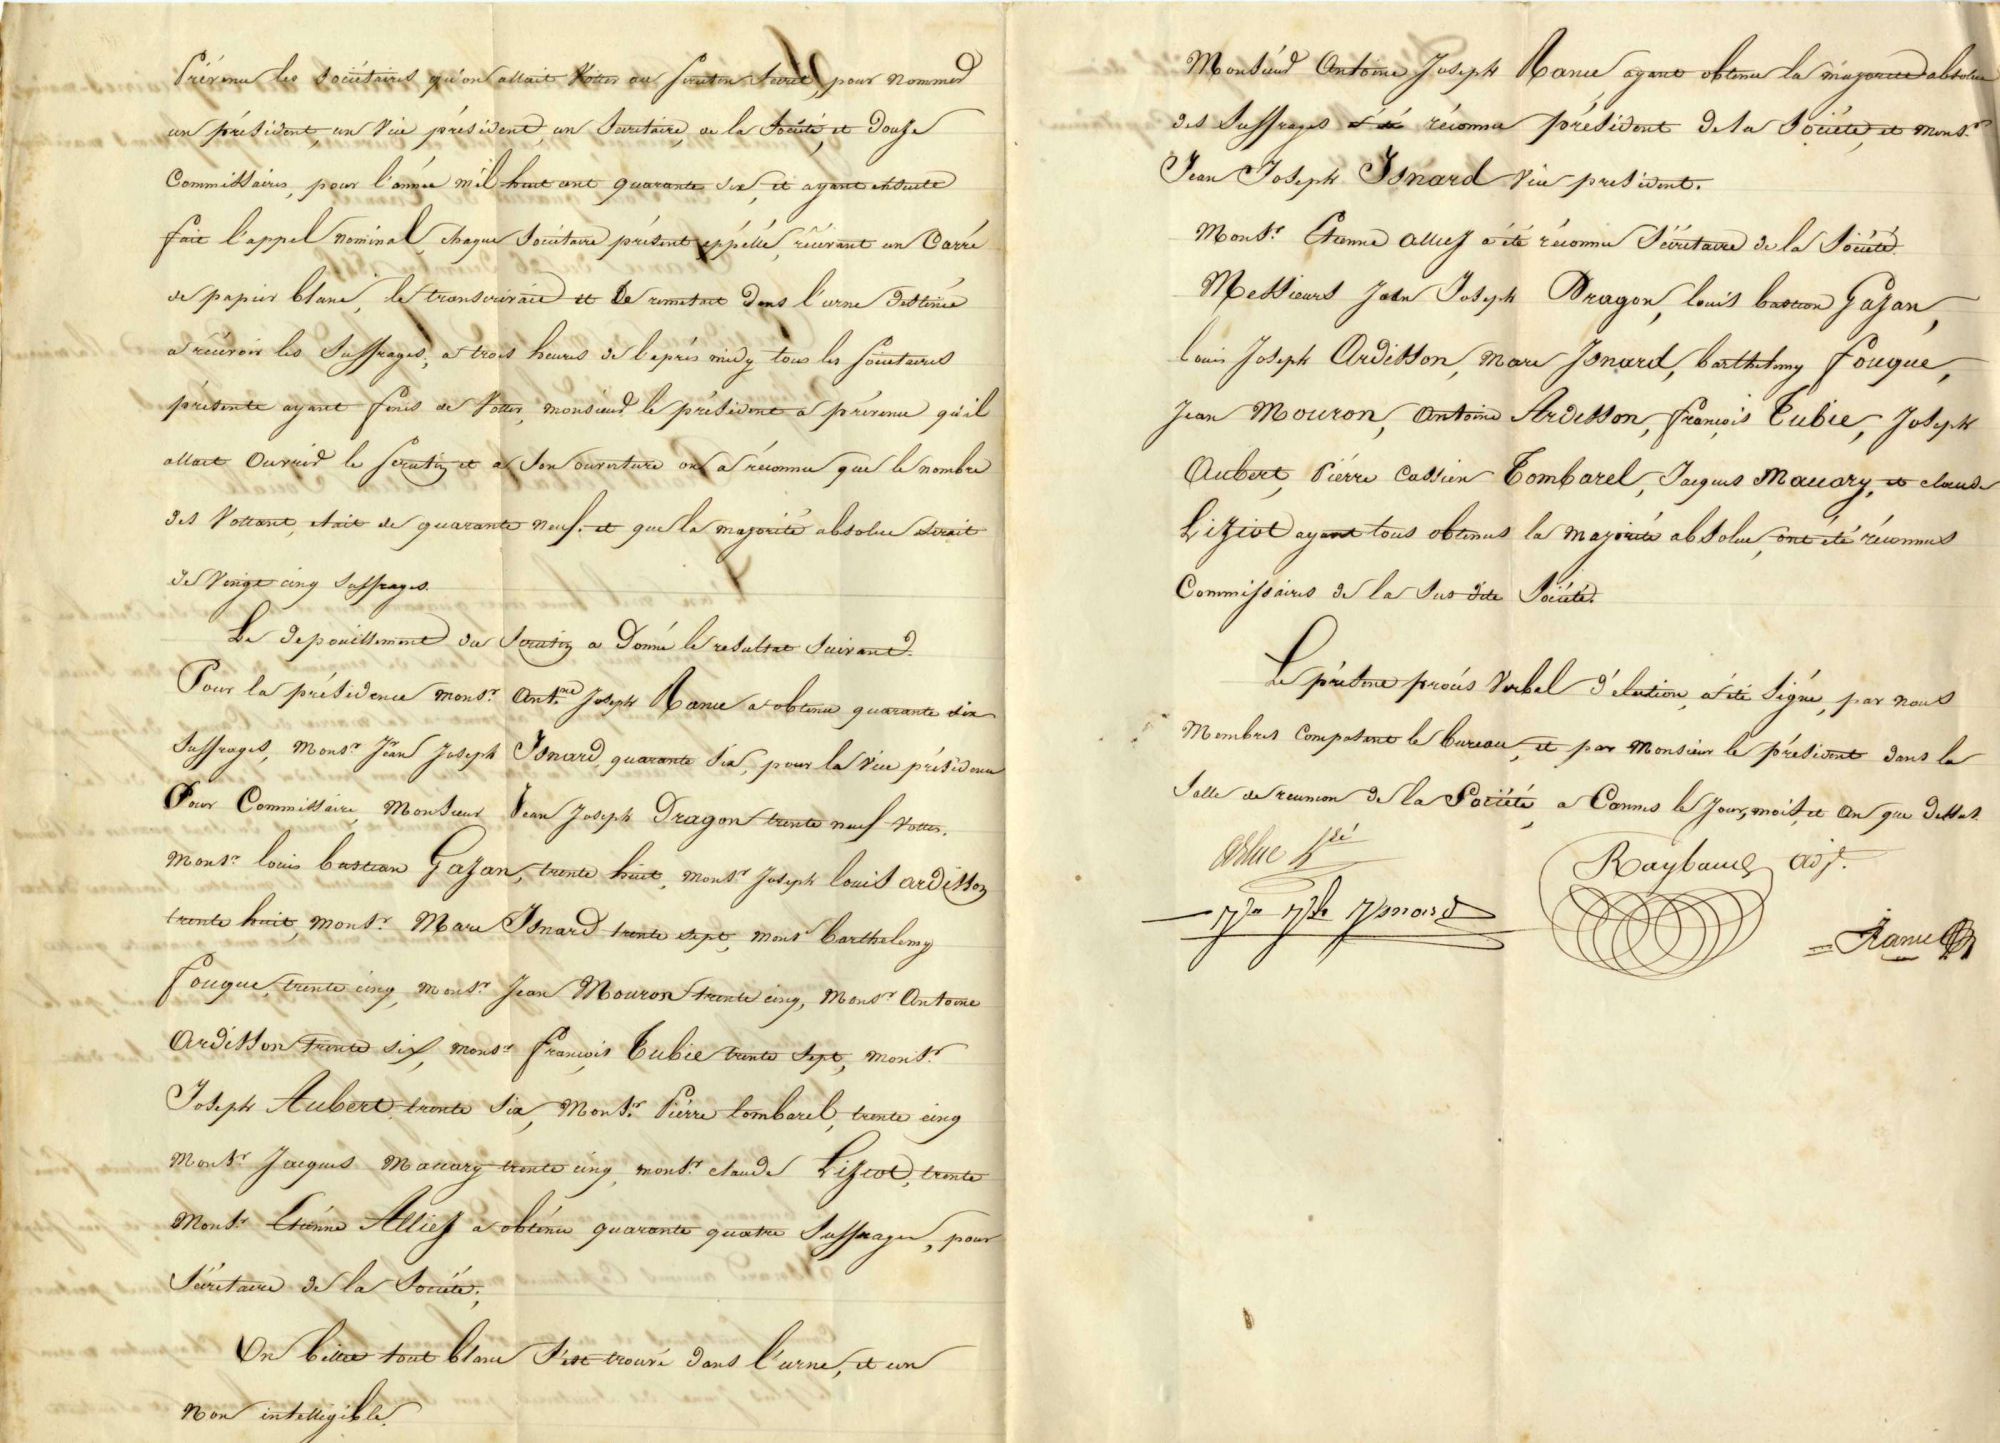 Prévenu les Sociétaires qu'on allait Votter au Scrutin Secret, pour nommer
un président, un Vice président, un Secrétaire, de la Société, et Douse
Commissaires, pour l'année mil huit cent quarante six, et ayant ensuite
fait l'appel nominal, chaque Sociétaire présent appéllé, récévant un Carré
de papier blanc, le transcrivait et le remettait Dans l'urne Destinée
a récévoir les Suffrages, a trois heures de l'aprés midy tous les Sociétaires
présents ayant finis de Votter, monsieur le président a prévenu qu'il
allait Ouvrir le Scrutin et a Son ouverture on a réconnu que le nombre
des Vottant, était de quarante neuf. et que la majorité absolue Serait
de Vingt cinq Suffrages.
Le Depouillement du Scrutin a Donné le resultat Suivant.
Pour la présidence Monsr. Antne. Joseph Rance a obtenu quarante six
Suffrages, Monsr. Jean Joseph Isnard, quarante Six, pour la Vice présidence
Pour Commissaire, Monsieur Jean Joseph Dragon trente neuf Vottes.
Monsr. louis bastian Gazan, trente huit, Monsr. Joseph louis ardisson
trente huit, Monsr. Marc Isnard trente sept, Monsr. barthelemy
fouque, trente cinq, Monsr. Jean Mouron trente cinq, Monsr. Antoine
Ardisson trente six, Monsr. françois Tubie trente sept, Monsr.
Joseph Aubert, trente Six, Monsr. Piérre tombarel, trente cinq
Monsr. Jacques Macary trente cinq, monsr. claude Liziot, trente
Monsr. Etiénne Alliez a obténu quarante quatre Suffrages, pour
Sécrétaire de la Société,
Un billet tout blanc S'est trouvé dans l'urne, et un
Non intelligible.
Monsieur Antoine Joseph Rance ayant obtenu la majorité absolue
des Suffrages a été réconnu président de la Société, et Monsr.
Jean Joseph Isnard Vice president.
Monsr. Etienne alliez a été réconnu Sécrétaire de la Société
Messieurs Jean Joseph Dragon, louis bastian Gazan,
louis Joseph Ardisson, Marc Isnard, barthelemy fouque,
Jean Mouron, Antoine Ardisson, françois Tubie, Joseph
Aubert, Piérre Cassien Tombarel, Jacques Macary, et claude
Liziot ayant tous obtenus la majorité absolue, ont été réconnus
Commissaires de la Sus dite Société.
Le présent procés Verbal d'eléction, a été Signé, par nous
Membres Composant le bureau, et par Monsieur le président dans la
Salle de reunion de la Société, a Cannes le Jour, mois, et an que dessus.
Raybaud adj.
Jn Jh Isnard
Rance